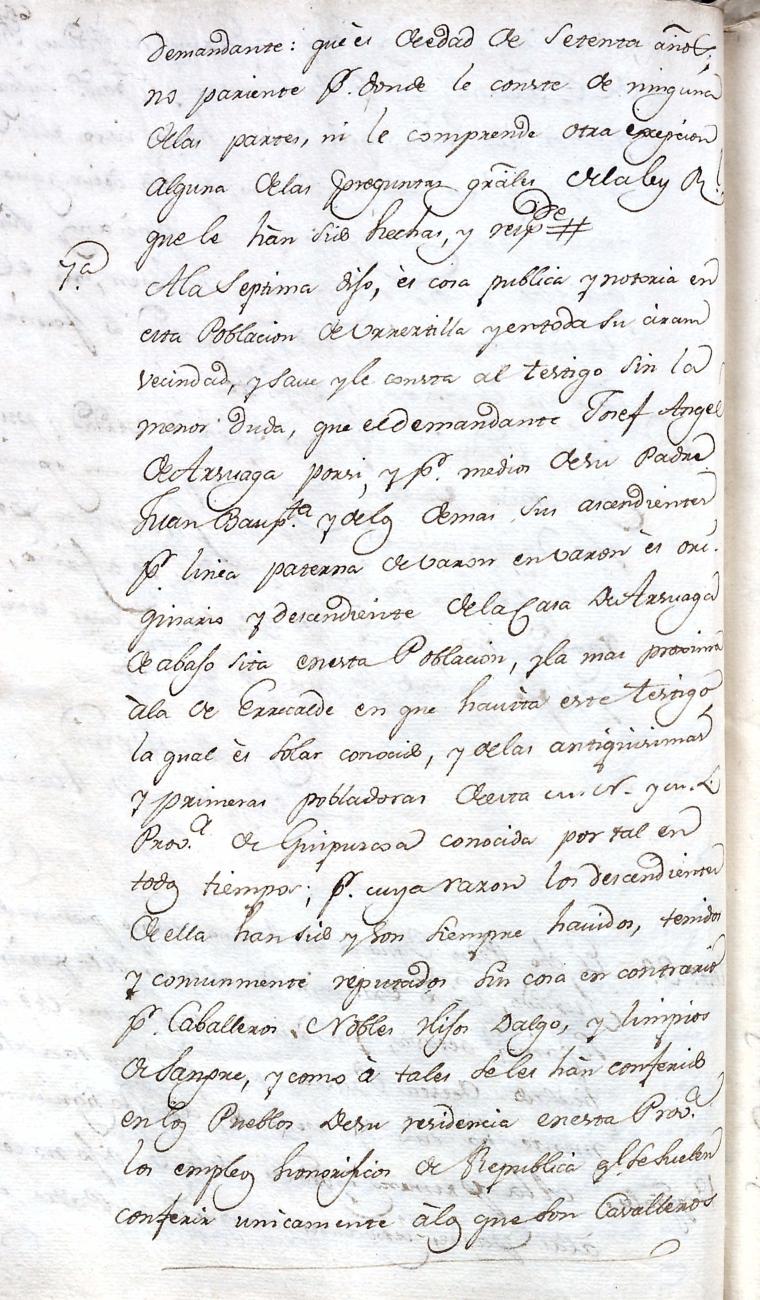 demandante: que ès de edad de Setenta añoš,
no pariente pr. donde le conste de ninguna
delas partes, ni le comprende otra exepcion
alguna delas preguntas grãles dela ley Rl.
que le hàn sido hechas, y respde #
7.a Ala Septima dijo, ès cosa publica y notoria en
esta Poblacion de Vrrestilla y entoda su circun
vecindad, y save y le consta al testigo sin la
menor duda, que el demandante Josef Angel
de Arsuaga porsi, y pr. medios desu Padre
Juan Baup.ta y delos demas sus ascendientes
pr. linea paterna de varon en varon ès ori-
ginario y descendiente dela Casa de Arsuaga
de abajo sita enesta Poblacion, y la mas proxima
àla de Errecalde en que havita este testigo
la qual ès solar conocido, y delas antiquisimas
y primeras pobladoras de esta M. N. y M. L.
Prov.a de Guipuzcoa conocida por tal en
todos tiempos; pr. cuya razon los descendientes
de ella han sido y son siempre havidos, tenidos
y comunmente reputados sin cosa en contrario
pr. Caballeros Nobles Hijos Dalgo, y limpios
de Sangre, y como à tales seles hàn conferido
enlos Pueblos desu residencia enesta Prov.a
los empleos honorificos de Republica q.e se suelen
conferir unicamente àlos que son Cavalleros